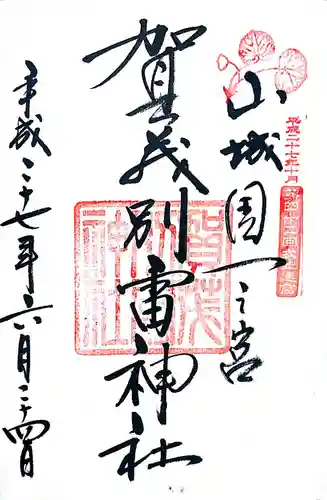 山城國一之宮
平成二十七年十月
第四十二回式年遷宮
賀茂別雷神社
賀茂別雷神社
平成二十七年六月二十四日